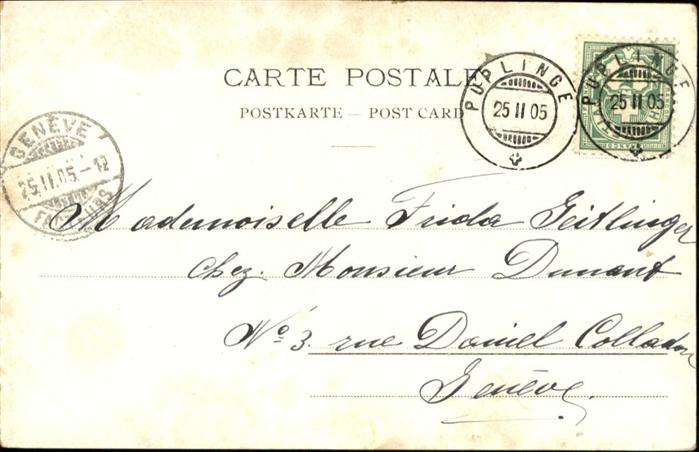 CARTE POSTALE
POSTKARTE — POST CARD
PUPLINGE
25 II 05
PUPLINGE
25 II 05
GENÈVE
25.II.05.-12
FACTEURS
Mademoiselle Frida Geitlinger
chez Monsieur Dunant
No 3. rue Daniel Colladon
Genève.